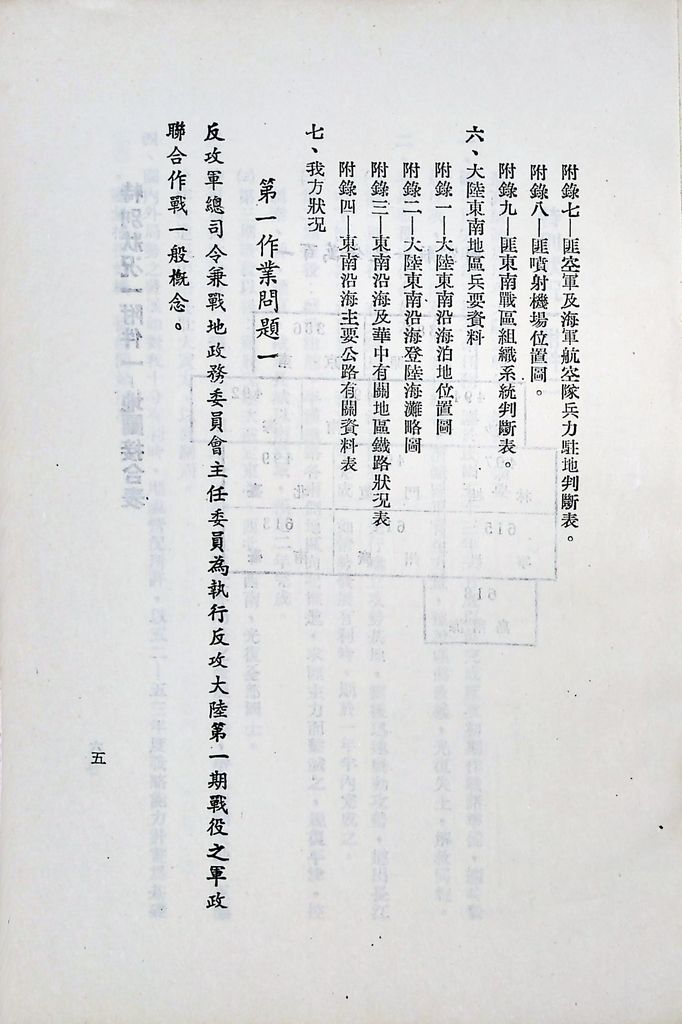 附錄七—匪空軍及海軍航空隊兵力駐地判斷表。
附錄八—匪噴射機場位置圖。
附錄九—匪東南戰區組織系統判斷表。
六、大陸東南地區兵要資料
附錄一—大陸東南沿海泊地位置圖
附錄二—大陸東南沿海登陸海灘略圖
附錄三—東南沿海及華中有關地區鐵路狀況表
附錄四—東南沿海主要公路有關資料表
七、我方狀況
第一作業問題一
反攻軍總司令兼戰地政務委員會主任委員為執行反攻大陸第一期戰役之軍政
聯合作戰一般概念。
五